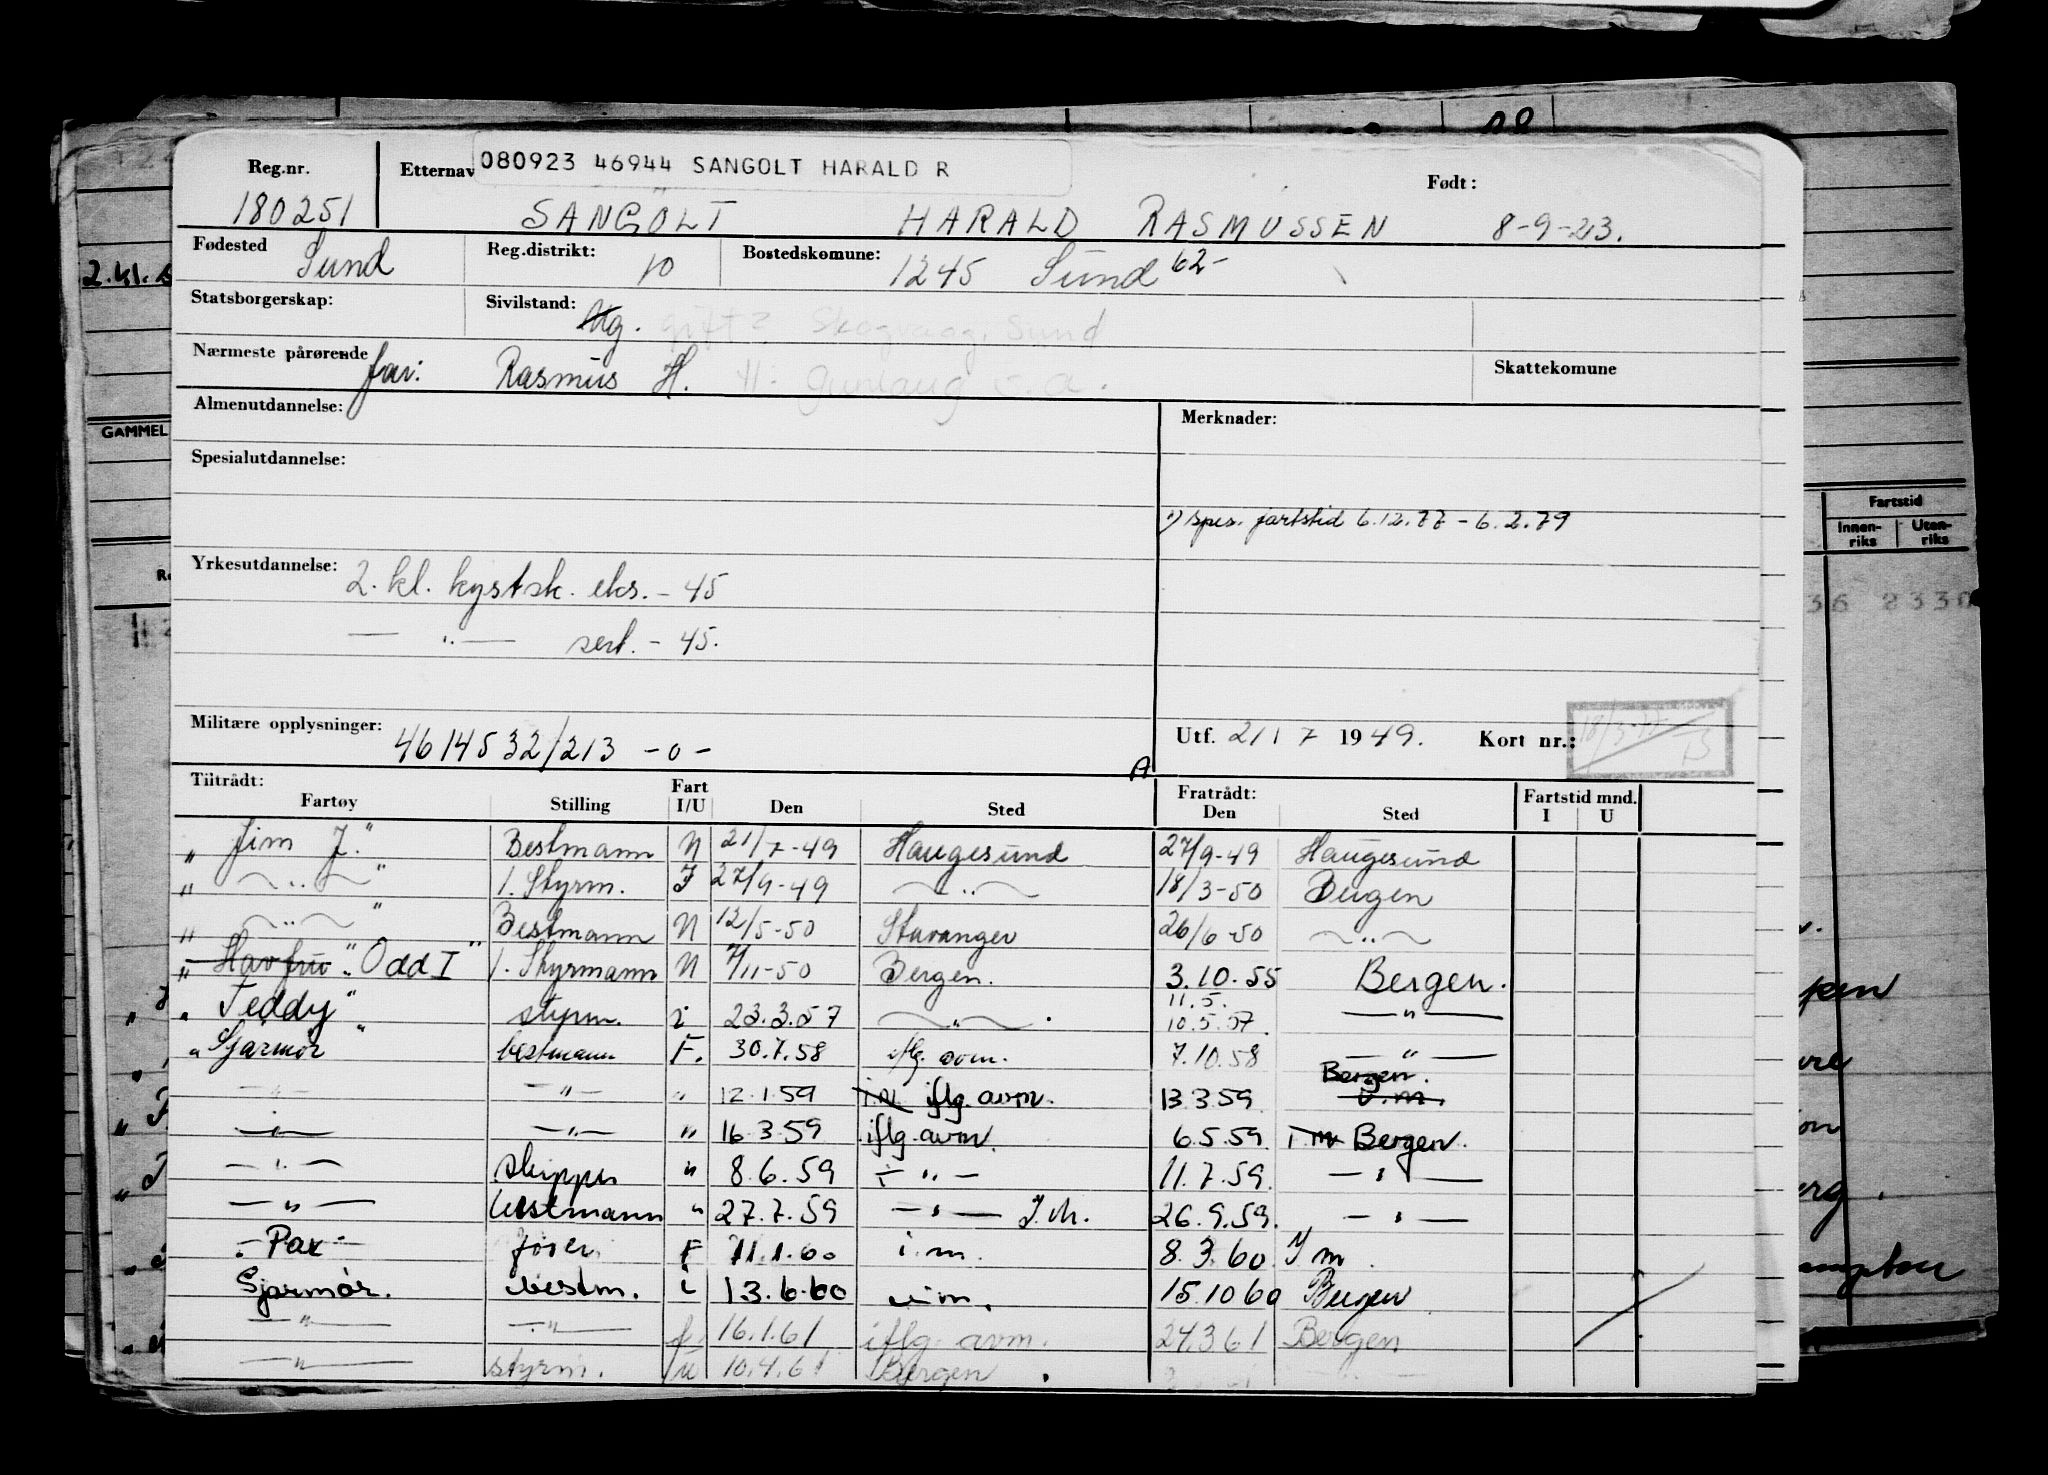 Reg.nr. Etternav 080923 46944 SANGOLT HARALD R Født:
180251 SANGOLT HARALD RASMUSSEN 8-9-23.
Fødested Sund Reg.distrikt: 10 Bostedskomune: 1245 Sund 62-
Statsborgerskap: Sivilstand: Ug. gift? Skogvaag, Sund
Nærmeste pårørende far: Rasmus H. H: Gunlaug s.a. Skattekomune
Almenutdannelse: Merknader:
Spesialutdannelse:
1) spes. fartstid 6.12.77 - 6.2.79
Yrkesutdannelse: 2. kl. kystsk. eks. - 45
— " — sert. - 45.
Militære opplysninger: 4614532/213 -0- Utf. 21/7 1949. Kort nr.: 18/3-77 15
A
Tiltrådt: Fartøy Stilling Fart I/U Den Sted Fratrådt: Den Sted Fartstid mnd. I U
" Jim J." Bestmann N 21/7-49 Haugesund 27/9-49 Haugesund
" — " — " 1. Styrm. I 27/9-49 — " — 18/3-50 Bergen
" — " — " Bestmann N 12/5-50 Stavanger 26/6-50 — " —
" Havfru " "Odd I" 1. Styrmann N 7/11-50 Bergen. 3.10.55 Bergen.
" Teddy" styrm. i 23.3.57 — " — . 11.5. 10.5.57 — " —
" Sjarmør " bestmann F. 30.7.58 iflg. avm. 7.10.58 — " —
— " — — " — " 12.1.59 i.m iflg. avm. 13.3.59 Bergen. i.m.
— " — — " — " 16.3.59 iflg. avm. 6.5.59 i.m Bergen.
— " — skipper " 8.6.59 — " — 11.7.59. — " —
— " — bestmann " 27.7.59 — " — I.M. 26.9.59. — " —
" Pax " fører F 11.1.60 i.m. 8.3.60 I m.
Sjarmør. bestm. i 13.6.60 i.m. 15.10 60 Bergen
— " — — " — f. 16.1.61 iflg. avm. 24.3 61 Bergen
— " — styrm. 10.4.61 Bergen .
2.kl.
GAMMEL
Fartstid
Innen-riks Uten-riks
36 2330